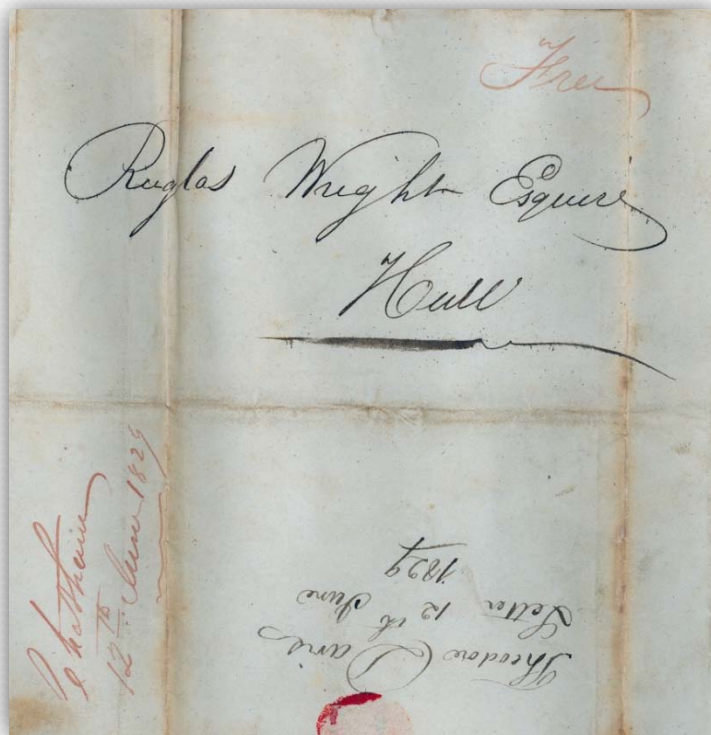 Free
Ruglas Wright Esquire
Hull
Chatham
12th June 1829
Theodore Davis
Letter 12th June
1829